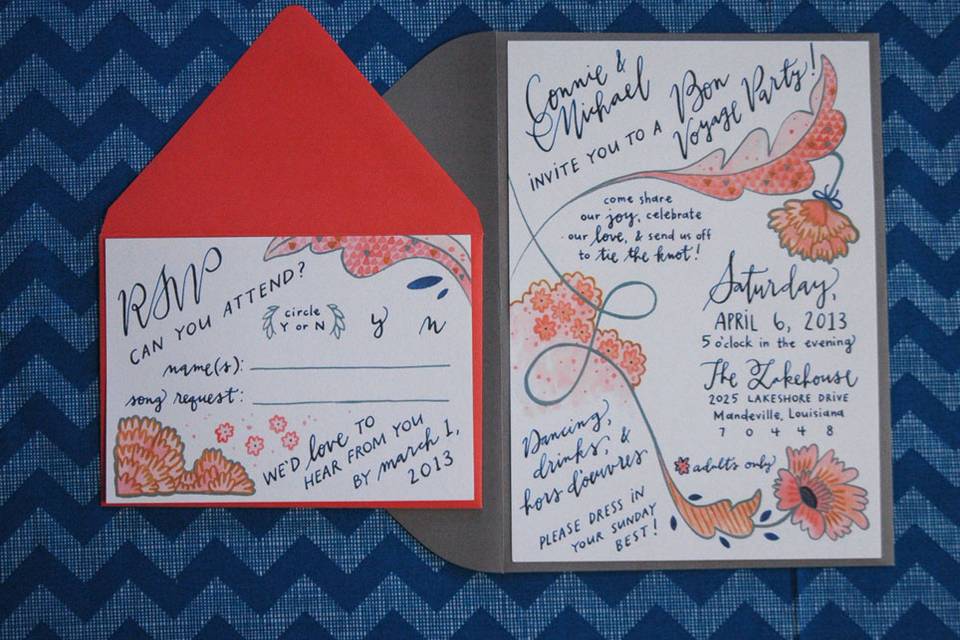 RSVP
CAN YOU ATTEND?
circle
Y or N
y n
name(s):
song request:
WE'D love TO
HEAR FROM YOU
BY march 1,
2013
Connie &
Michael
INVITE YOU TO A
Bon
Voyage Party!
come share
our joy, celebrate
our love, & send us off
to tie the knot!
Saturday,
APRIL 6, 2013
5 o'clock in the evening
The Lakehouse
2025 LAKESHORE DRIVE
Mandeville, Louisiana
7 0 4 4 8
adults only
Dancing,
drinks, &
hors d'oeuvres
PLEASE DRESS IN
YOUR SUNDAY
BEST!